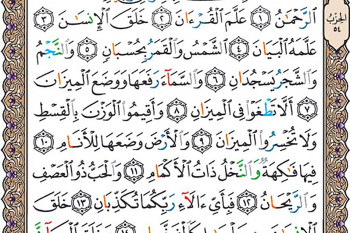 الرَّحْمَٰنُ ١ عَلَّمَ الْقُرْءَانَ ٢ خَلَقَ الْإِنسَٰنَ ٣
الحزب ٥٤
عَلَّمَهُ الْبَيَانَ ٤ الشَّمْسُ وَالْقَمَرُ بِحُسْبَانٍ ٥ وَالنَّجْمُ
وَالشَّجَرُ يَسْجُدَانِ ٦ وَالسَّمَاءَ رَفَعَهَا وَوَضَعَ الْمِيزَانَ
٧ أَلَّا تَطْغَوْا فِي الْمِيزَانِ ٨ وَأَقِيمُوا الْوَزْنَ بِالْقِسْطِ
وَلَا تُخْسِرُوا الْمِيزَانَ ٩ وَالْأَرْضَ وَضَعَهَا لِلْأَنَامِ ١٠
فِيهَا فَٰكِهَةٌ وَالنَّخْلُ ذَاتُ الْأَكْمَامِ ١١ وَالْحَبُّ ذُو الْعَصْفِ
وَالرَّيْحَانُ ١٢ فَبِأَيِّ ءَالَاءِ رَبِّكُمَا تُكَذِّبَانِ ١٣ خَلَقَ